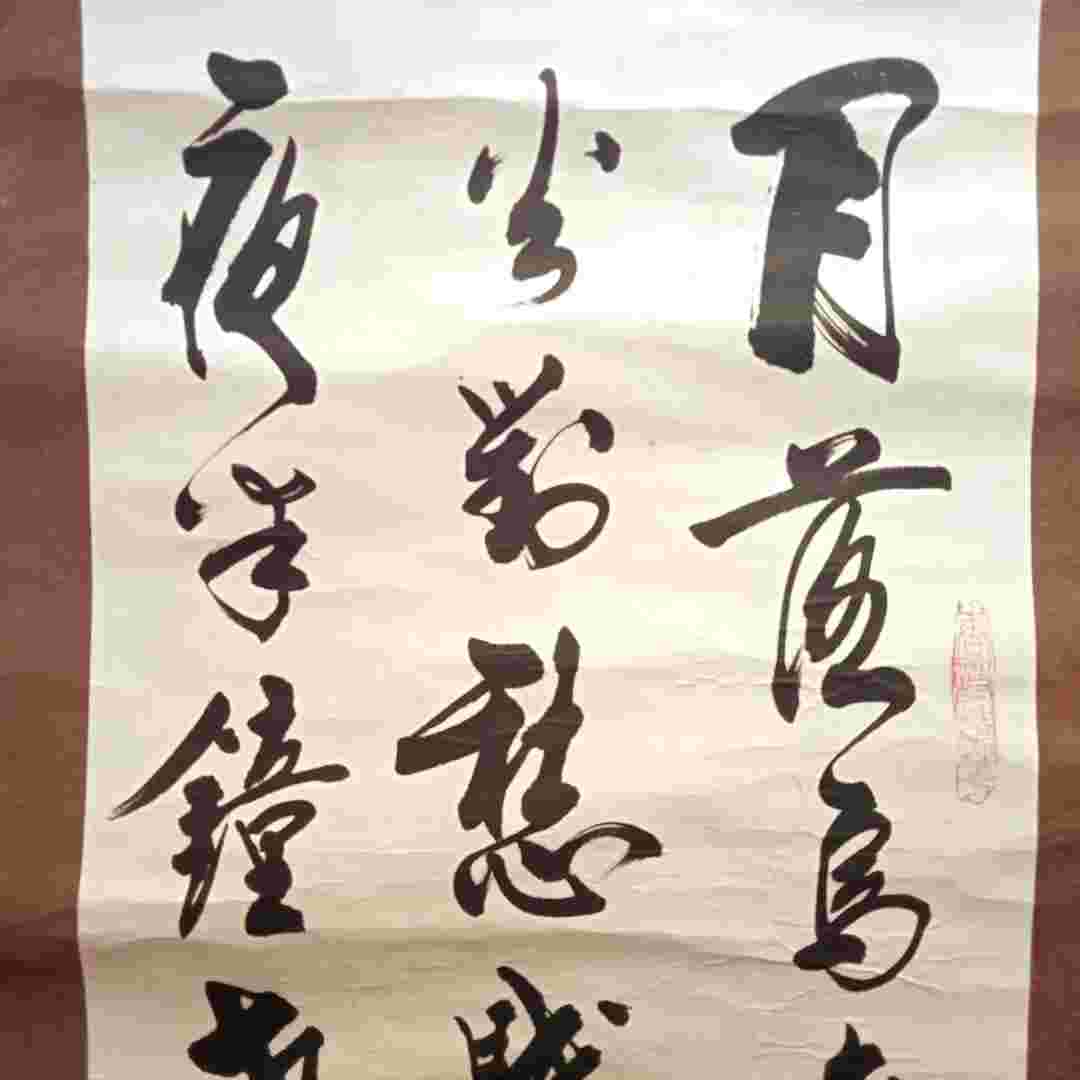 月落烏
火對愁眠
夜半鐘